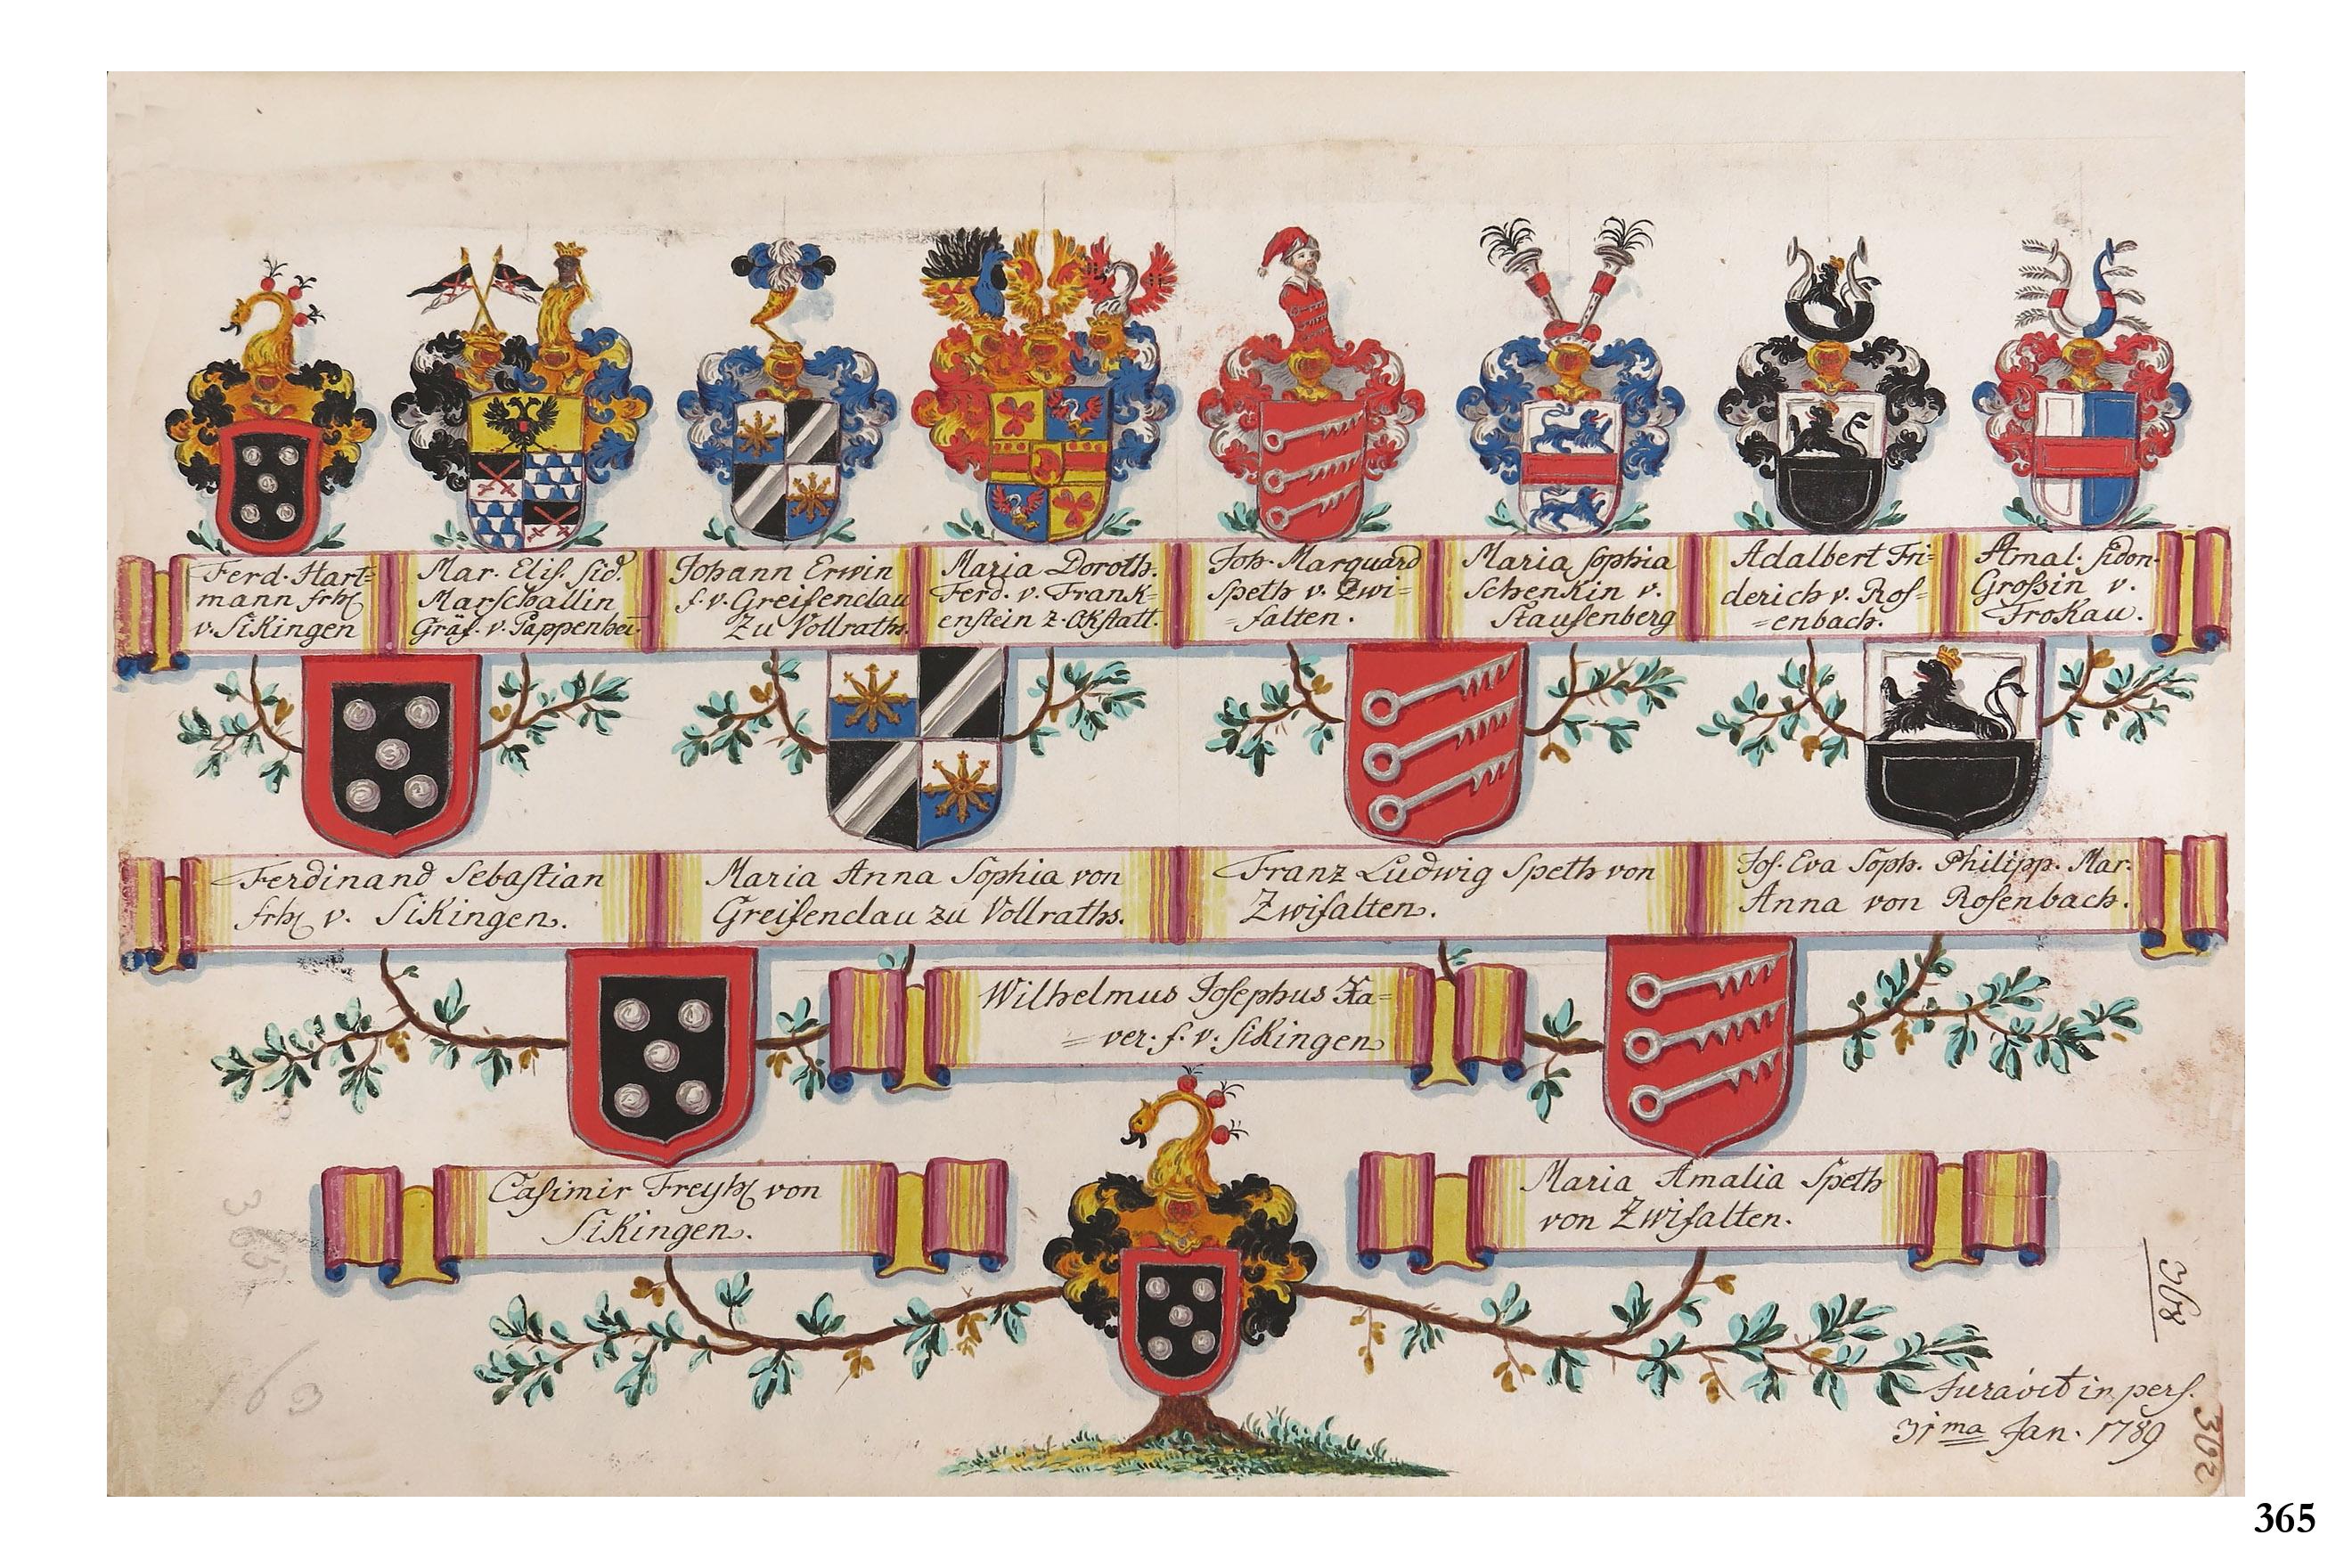 Ferd. Hart=
mann frh
v. Sikingen
Mar. Elis. Sid.
Marschallin
Gräf. v. Pappenhei.
Johann Erwin
f. v. Greifenclau
Zu Vollraths.
Maria Doroth.
Ferd. v. Frank=
enstein z. Okstatt.
Joh. Marquard
Speth v. Zwi=
=falten.
Maria Sophia
Schenkin v.
Staufenberg
Adalbert Fri=
derich v. Ros=
=enbach.
Amal. Sidon.
Großin v.
Trokau.
Ferdinand Sebastian
frh v. Sikingen.
Maria Anna Sophia von
Greifenclau zu Vollraths.
Franz Ludwig Speth von
Zwifalten.
Jos. Eva Soph. Philipp. Mar.
Anna von Rosenbach.
Wilhelmus Josephus Xa=
=ver. f. v. Sikingen
Casimir Freyh von
Sikingen.
Maria Amalia Speth
von Zwifalten.
365
163
368
Juravit in pers.
31ma Jan. 1789
362
365